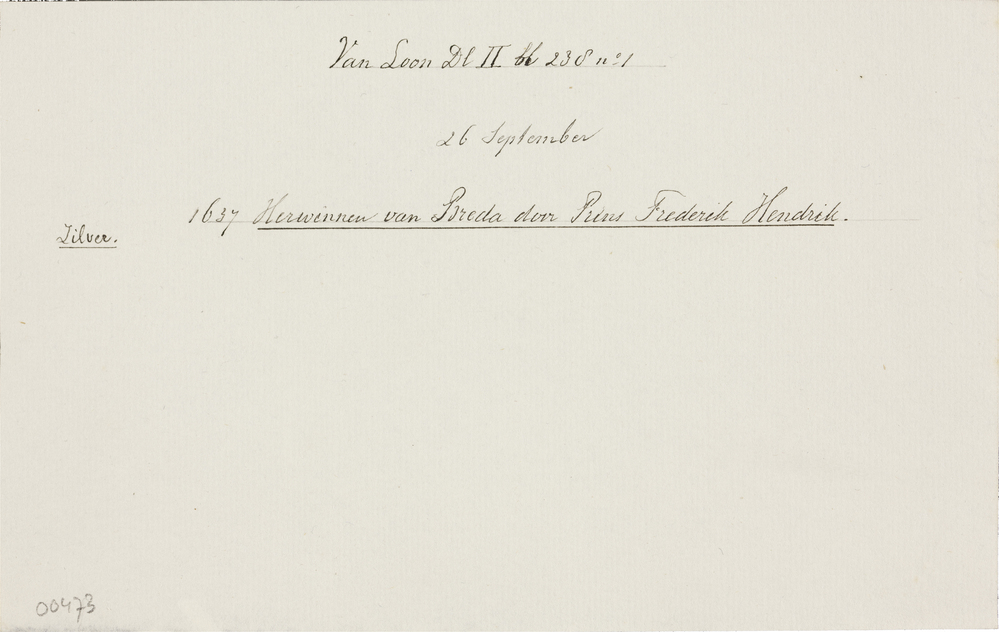 Van Loon Dl II bl 238 no 1
26 September
1637 Herwinnen van Breda door Prins Frederik Hendrik.
Zilver.
00473